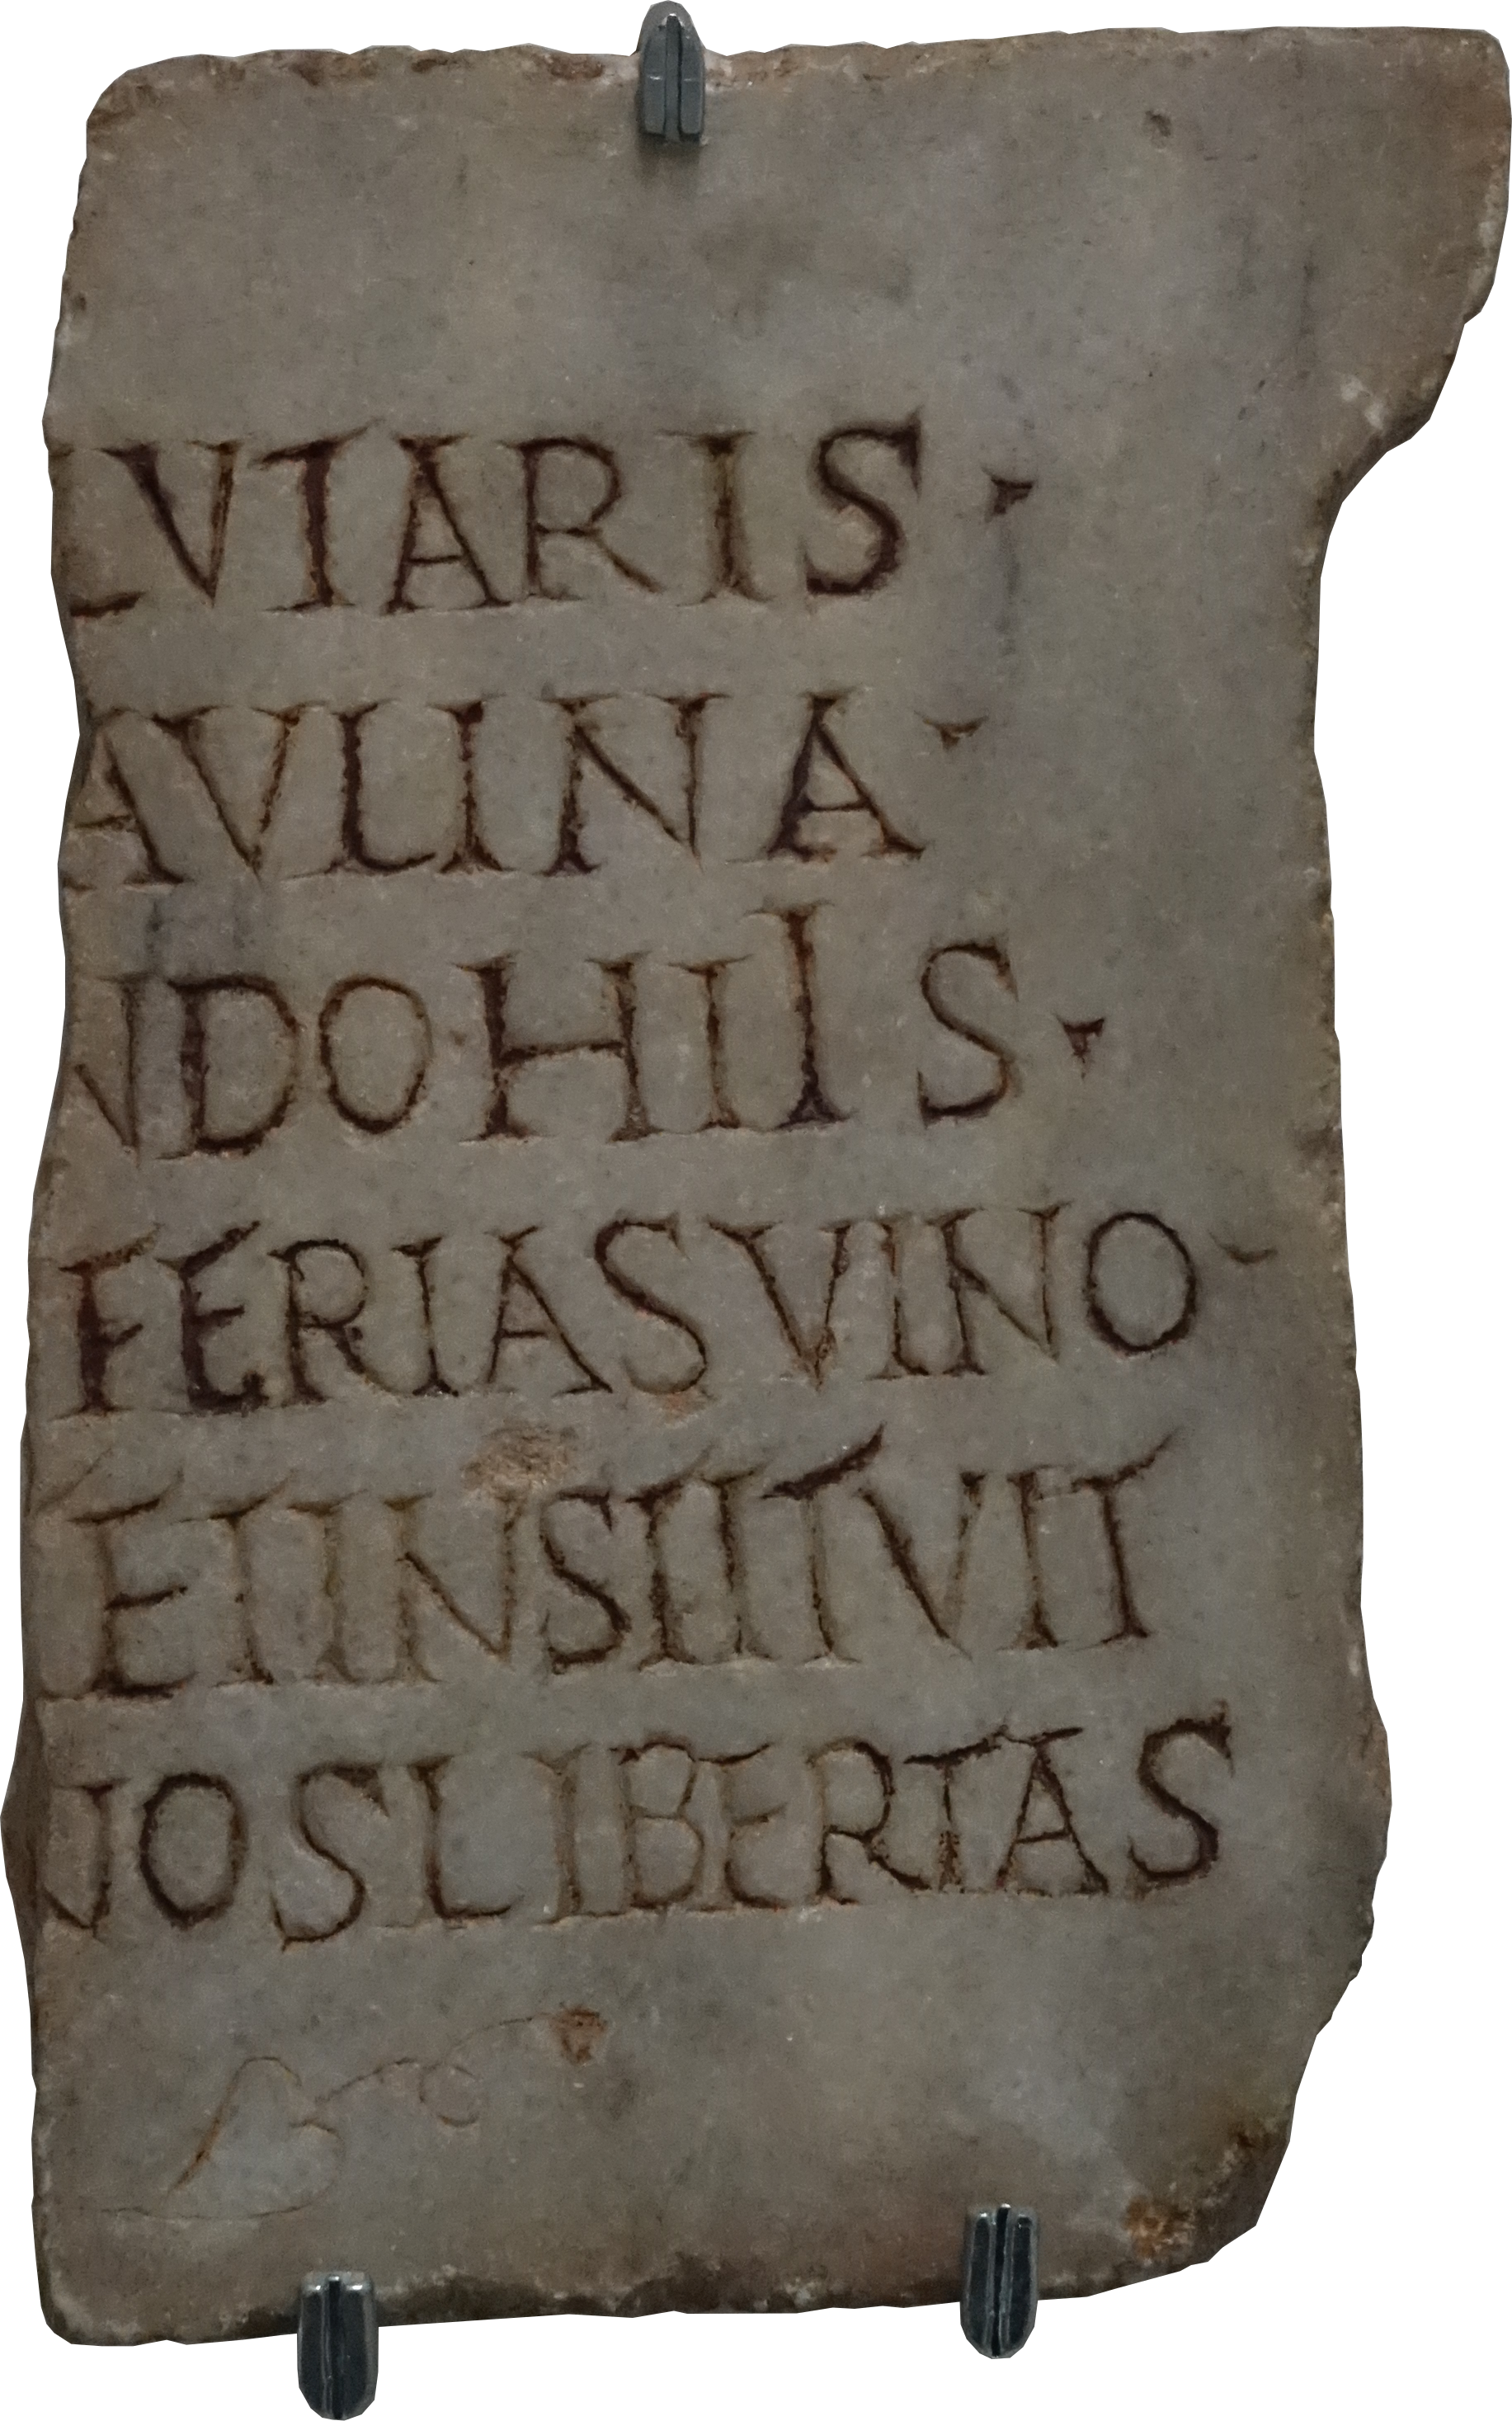 LVTARIS ·
AVLINA ·
NDO · HIIS ·
FERIAS VINO ·
ET INSTITVIT
NOS LIBERTAS